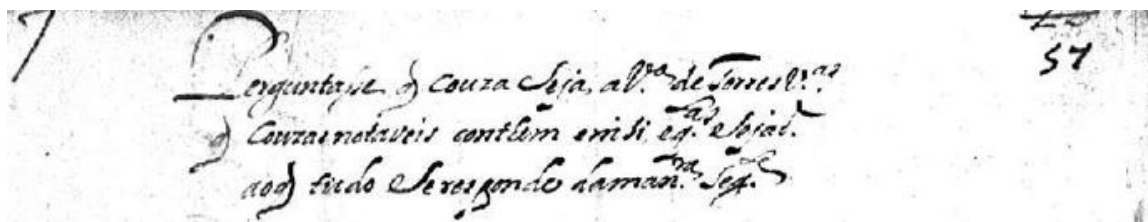 57
Perguntasse q̃ Couza Seja, a V.ª de Torres V.as
q̃ Couzas notaveis contem em si, e q.
ao q̃ tudo Se responde da man.ra Seg.te